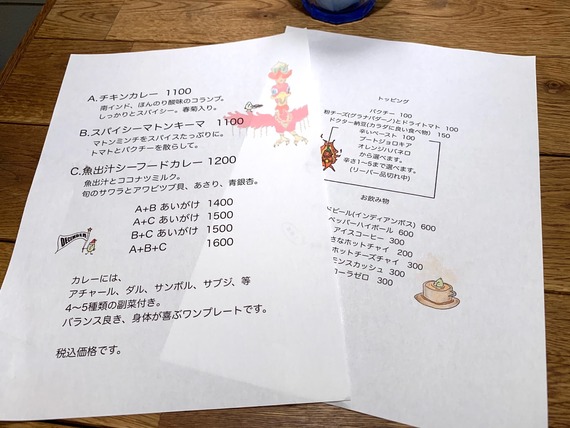 A.チキンカレー 1100
南インド、ほんのり酸味のコランブ。
しっかりとスパイシー。春菊入り。
B.スパイシーマトンキーマ 1100
マトンミンチをスパイスたっぷりに。
トマトとパクチーを散らして。
C.魚出汁シーフードカレー 1200
魚出汁とココナツミルク。
旬のサワラとアワビツブ貝、あさり、青銀杏。
A+B あいがけ 1400
A+C あいがけ 1500
B+C あいがけ 1500
A+B+C 1600
DECEMBER
カレーには、
アチャール、ダル、サンボル、サブジ、等
4〜5種類の副菜付き。
バランス良き、身体が喜ぶワンプレートです。
税込価格です。
トッピング
パクチー 100
粉チーズ(グラナパダーノ)とドライトマト 100
ドクター納豆(カラダに良い食べ物) 150
辛いペースト 100
ブートジョロキア
オレンジハバネロ
から選べます。
辛さ1〜5まで選べます。
(リーパー品切れ中)
お飲み物
ドビール(インディアンボス) 600
ペッパーハイボール 600
アイスコーヒー 300
さなホットチャイ 200
ホットチーズチャイ 300
モンスカッシュ 300
ーラゼロ 300